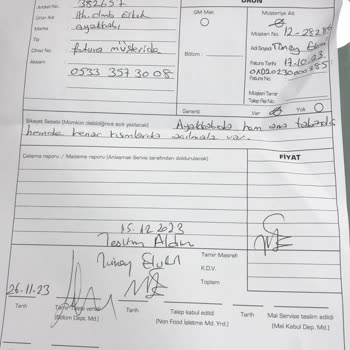 ÜRÜN
Artikel No. 382657
Ürün Adı
Marka Ayakkabı
Tip
Cihaz No fatura müşteride
Aksam
0533 357 30 08
GM Malı
Bölüm :
Müşteriye Ait
Müşteri No: 12-28286
Adı Soyadı
Fatura Tarihi 17.10.23
Fatura No.
Müşteri Tamir
Talep Fişi No.
Garanti Var Yok
Şikayet Sebebi (Mümkün olabildiğince açık yazılacak) Ayakkabıda hem
hemde kenar kısımlarda açılmalar var.
Çalışma raporu / Malzeme raporu (Anlaşmalı Servis tarafından doldurulacak)
FİYAT
15.12.2023
Teslim Aldım
Tamir Masrafı
K.D.V.
Toplam
26.11.23
Tarih
(Bölüm Dept. Md.)
Tarih
Talep kabul edildi
(Non Food İşletme Md. Yrd.)
Tarih
Mal Servise teslim edildi
(Mal Kabul Dep. Md.)